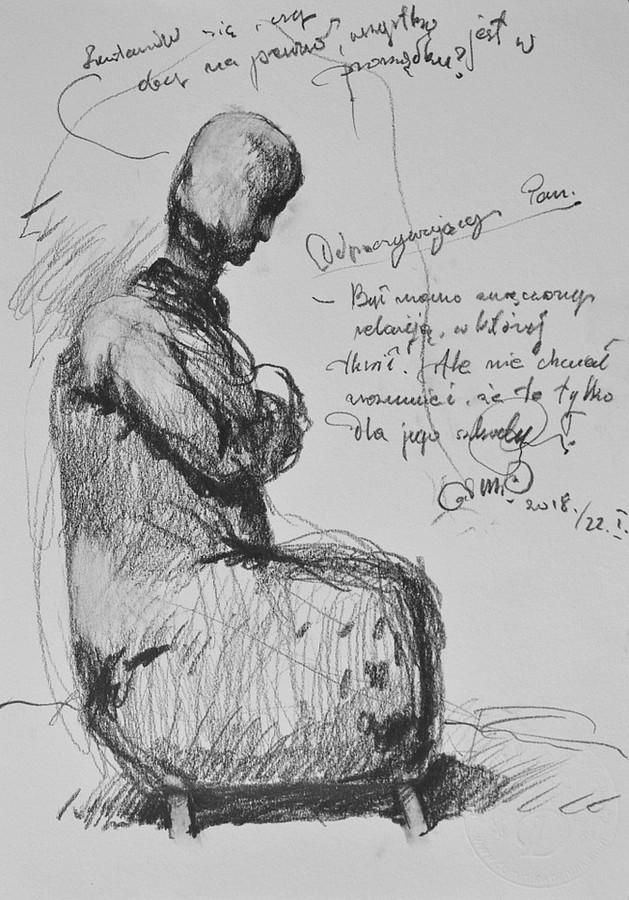 Zastanów się czy
oby na pewno, wszystko jest w
porządku?
Odpoczywający Pan.
– Był mocno zmęczony
relacją, w której
tkwił! Ale nie chciał
zrozumieć, że to tylko
dla jego szkody?
2018./22.I.